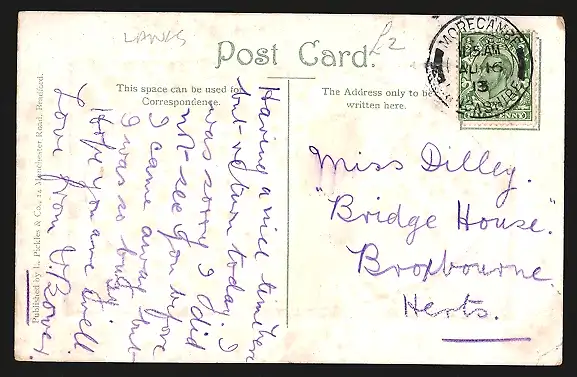 LANCS
£2
Post Card.
This space can be used for
Correspondence.
The Address only to be
written here.
MORECAMBE
AU 16
13
Published by L. Pickles & Co., 14 Manchester Road, Bradford.
Having a nice time here
but return today. I
was sorry I did
not see you before
I came away but
I was so busy.
Hope you are well
Love from V. Bower.
Miss Dilley.
"Bridge House."
Broxbourne
Herts.